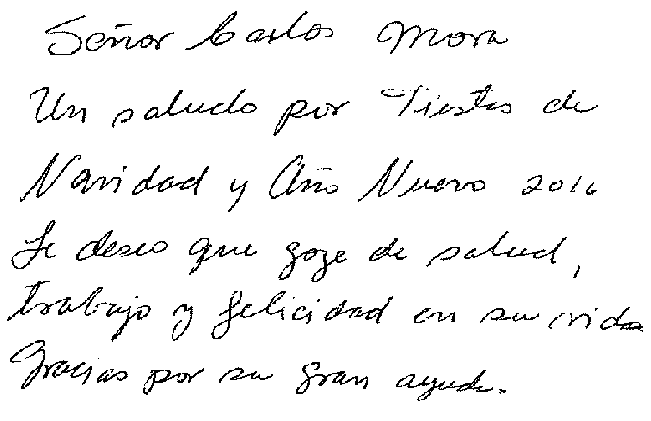 Señor Carlos Mora
Un saludo por Fiestas de
Navidad y Año Nuevo 2016
Le deseo que goze de salud,
trabajo y felicidad en su vida
Gracias por su gran ayuda.